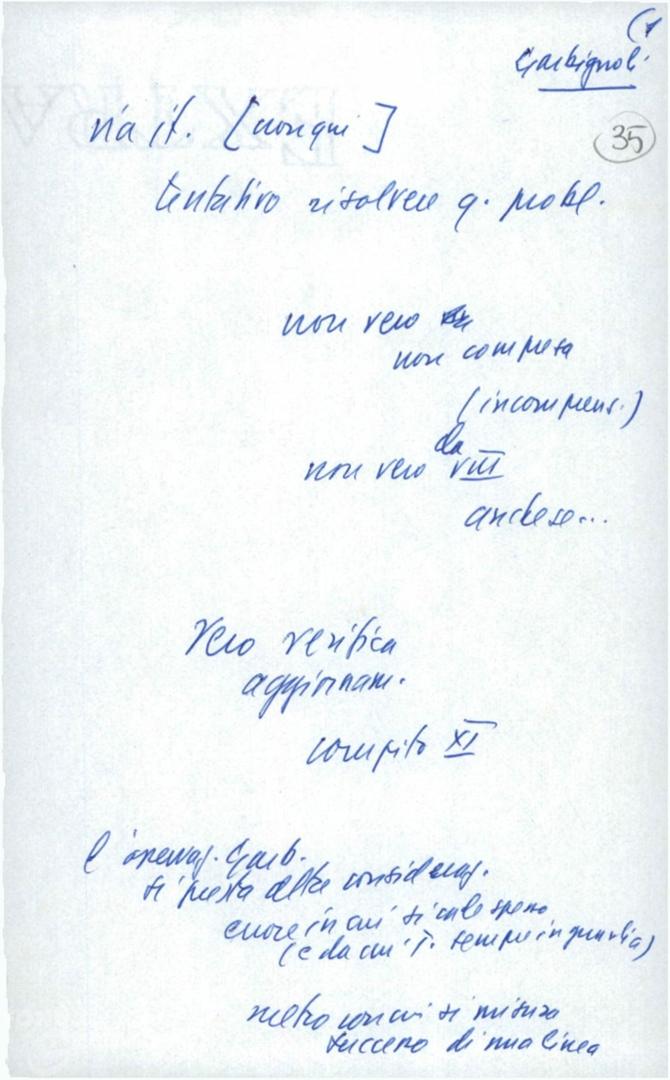 (1
Garbignoli
via it. [non qui]
35
tentativo risolvere q. probl.
non vero
non compresa
(incompens.)
non vero da VIII
anch'esso...
Vero verifica
aggiornam.
compito XI
l'osservaz. Garb.
si presta altre consideraz.
errore in cui si cade spesso
(e da cui T. sempre in guardia)
metro con cui si misura
successo di una linea